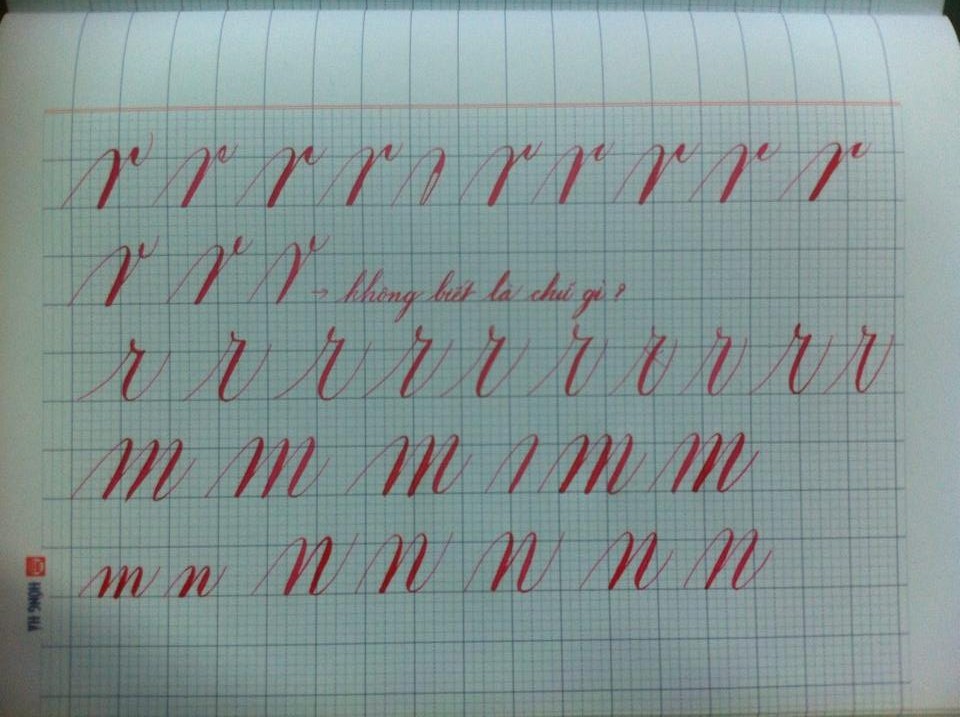 r r r r r r r r r
r r r → không biết là chữ gì?
r r r r r r r r r r
m m m m m
m n n n n n n
HỒNG HÀ